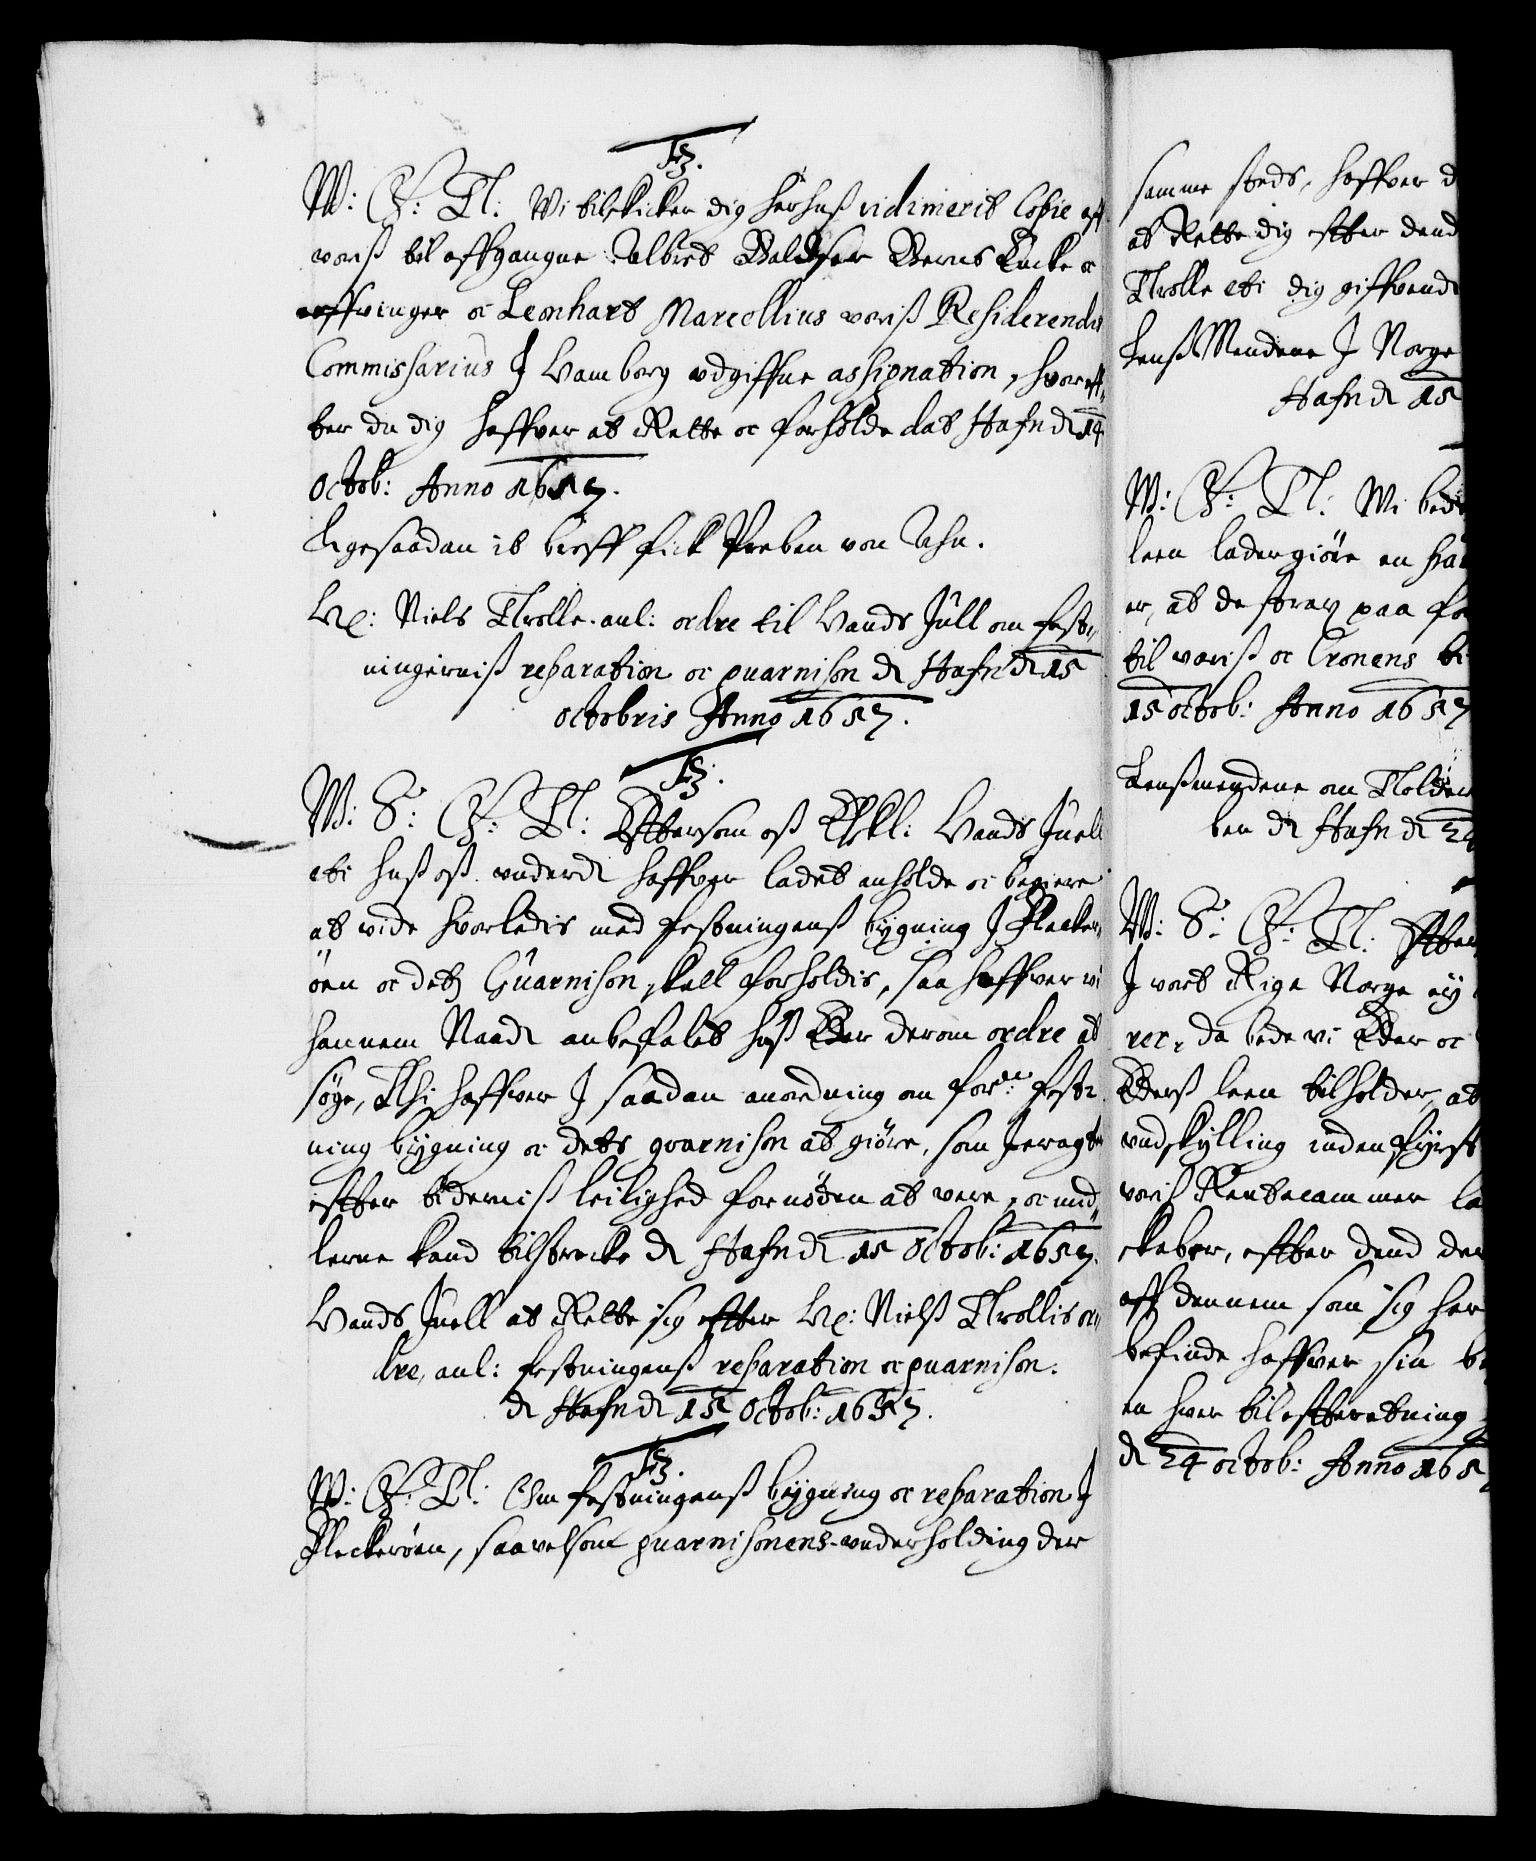 F3.
W: G: Tl: Wi tilskicker dig herhuß vidimerit Copie aff
voriß til affgangne Albret Baltser Berns Enke oc
arffvinger oc Leonhart Marcellius voriß Residerendis
Commissarius J Hamborg udgiffne assignation, hvoreff-
ter du dig haffver at Rette oc forholde dat Hafn d 14
Octob: Anno 1657.
Ligesaadan it breff fick Preben von Ahn.
Hr: Niels Trolle anl: ordre til Hands Jull om fest-
ningerniß reparation oc guarnison d Hafn d 15
octobris Anno 1657.
F3.
W: S: G: Tl: Eftersom oß Elskl: Hands Juell
ebi huß oß underd haffver ladet anholde oc begiere
at vide hvorledis med festningenß bygning J Flecker-
öen oc dets Guarnison skall forholdis, saa haffver vi
hannem Naadt anbefalet huß Eder derom ordre at
söge, Thi haffver J saadan anordning om forne fest-
ning bygning oc dets gvarnison at giöre, som J eragter
effter tiderniß leilighed fornöden at vere, oc mid-
lerne kand tilstrecke d Hafn d 15 Octob: 1657.
Hands Juell at Rette sig effter Hr: Nielß Trollis or-
dre, anl: festningenß reparation oc guarnison.
d Hafn d 15 Octob: 1657.
F3.
W: G: Tl: Om festningenß bygning oc reparation J
Fleckeröen, saavelsom guarnisonens underholding der
samme steds, haffver d
at Rette dig effter dend
Trolle ebi dig giffvend
LenßMendene J Norge
Hafn d 15
W: G: Tl: Wi bede
leen lader giöre en
er, at de strax paa
til voriß oc Cronens
15 octob: Anno 1657
Lenßmendene om Tolder
ten d Hafn d 24
W: S: G: Tl: Efter
J vort Rige Norge ey
rer, da bede vi Eder oc
Ederß leen tilholder, at
undskylling inden fyrst
voriß Rentecammer la
skaber, effter dend der
aff dennem som sig her
befinde haffver sin
en hver til effterretning
d 24 octob: Anno 165